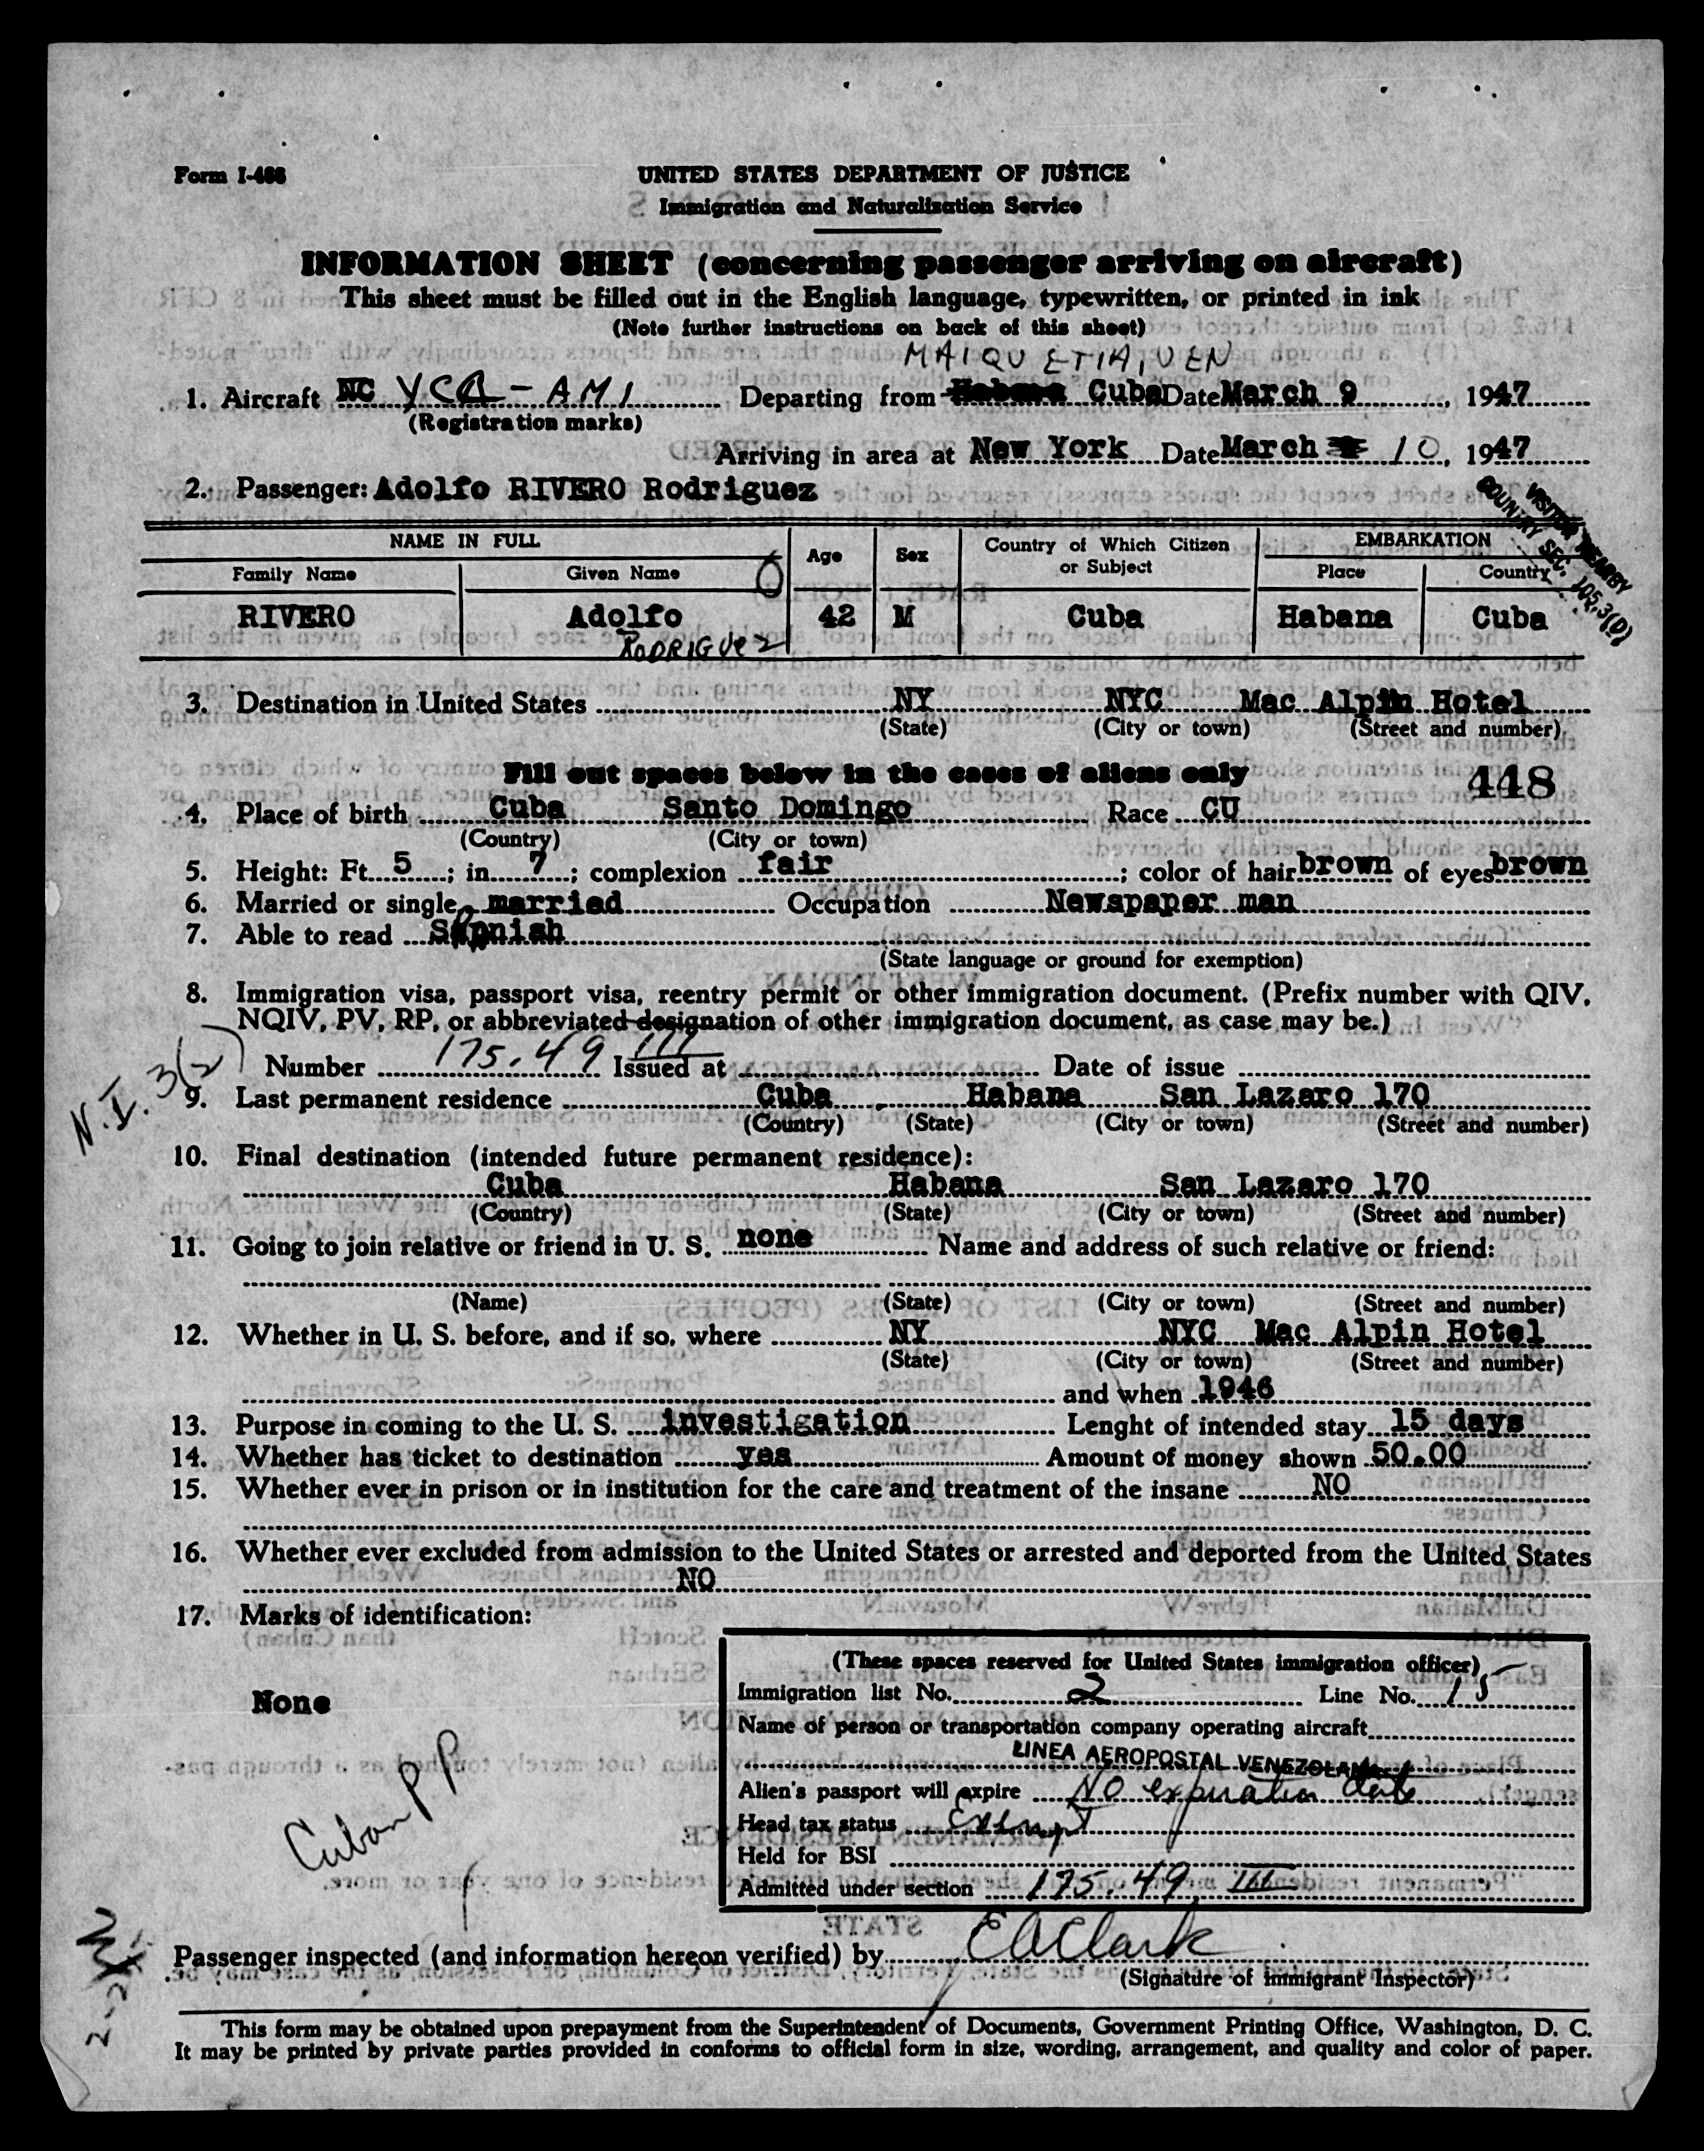 Form I-466
UNITED STATES DEPARTMENT OF JUSTICE
Immigration and Naturalization Service
INFORMATION SHEET (concerning passenger arriving on aircraft)
This sheet must be filled out in the English language, typewritten, or printed in ink
(Note further instructions on back of this sheet)
MAIQUETIA, VEN
1. Aircraft NC YCA-AMI Departing from Habana Cuba Date March 9, 1947
(Registration marks)
Arriving in area at New York Date March 10, 1947
2. Passenger: Adolfo RIVERO Rodriguez
VISITOR NEARBY
COUNTRY SEC. 105.3(D)
NAME IN FULL Age Sex Country of Which Citizen or Subject EMBARKATION
Family Name Given Name Place Country
RIVERO Adolfo 42 M Cuba Habana Cuba
RODRIGUEZ
3. Destination in United States NY NYC Mac Alpin Hotel
(State) (City or town) (Street and number)
Fill out spaces below in the cases of aliens only 448
4. Place of birth Cuba Santo Domingo Race CU
(Country) (City or town)
5. Height: Ft. 5; in. 7; complexion fair; color of hair brown of eyes brown
6. Married or single married Occupation Newspaper man
7. Able to read Spanish
(State language or ground for exemption)
8. Immigration visa, passport visa, reentry permit or other immigration document. (Prefix number with QIV,
NQIV, PV, RP, or abbreviated designation of other immigration document, as case may be.)
N.I. 3(2)
Number 175.49 III Issued at Date of issue
9. Last permanent residence Cuba Habana San Lazaro 170
(Country) (State) (City or town) (Street and number)
10. Final destination (intended future permanent residence):
Cuba Habana San Lazaro 170
(Country) (State) (City or town) (Street and number)
11. Going to join relative or friend in U. S. none Name and address of such relative or friend:
(Name) (State) (City or town) (Street and number)
12. Whether in U. S. before, and if so, where NY NYC Mac Alpin Hotel
(State) (City or town) (Street and number)
and when 1946
13. Purpose in coming to the U. S. investigation Lenght of intended stay 15 days
14. Whether has ticket to destination yes Amount of money shown 50.00
15. Whether ever in prison or in institution for the care and treatment of the insane NO
16. Whether ever excluded from admission to the United States or arrested and deported from the United States
NO
17. Marks of identification:
None
Cuban PP
(These spaces reserved for United States immigration officer)
Immigration list No. 2 Line No. 15
Name of person or transportation company operating aircraft
LINEA AEROPOSTAL VENEZOLANA
Alien's passport will expire NO expiration date
Head tax status Exempt
Held for BSI
Admitted under section 175.49 III
Passenger inspected (and information hereon verified) by E A Clark
(Signature of Immigrant Inspector)
This form may be obtained upon prepayment from the Superintendent of Documents, Government Printing Office, Washington, D. C.
It may be printed by private parties provided in conforms to official form in size, wording, arrangement, and quality and color of paper.